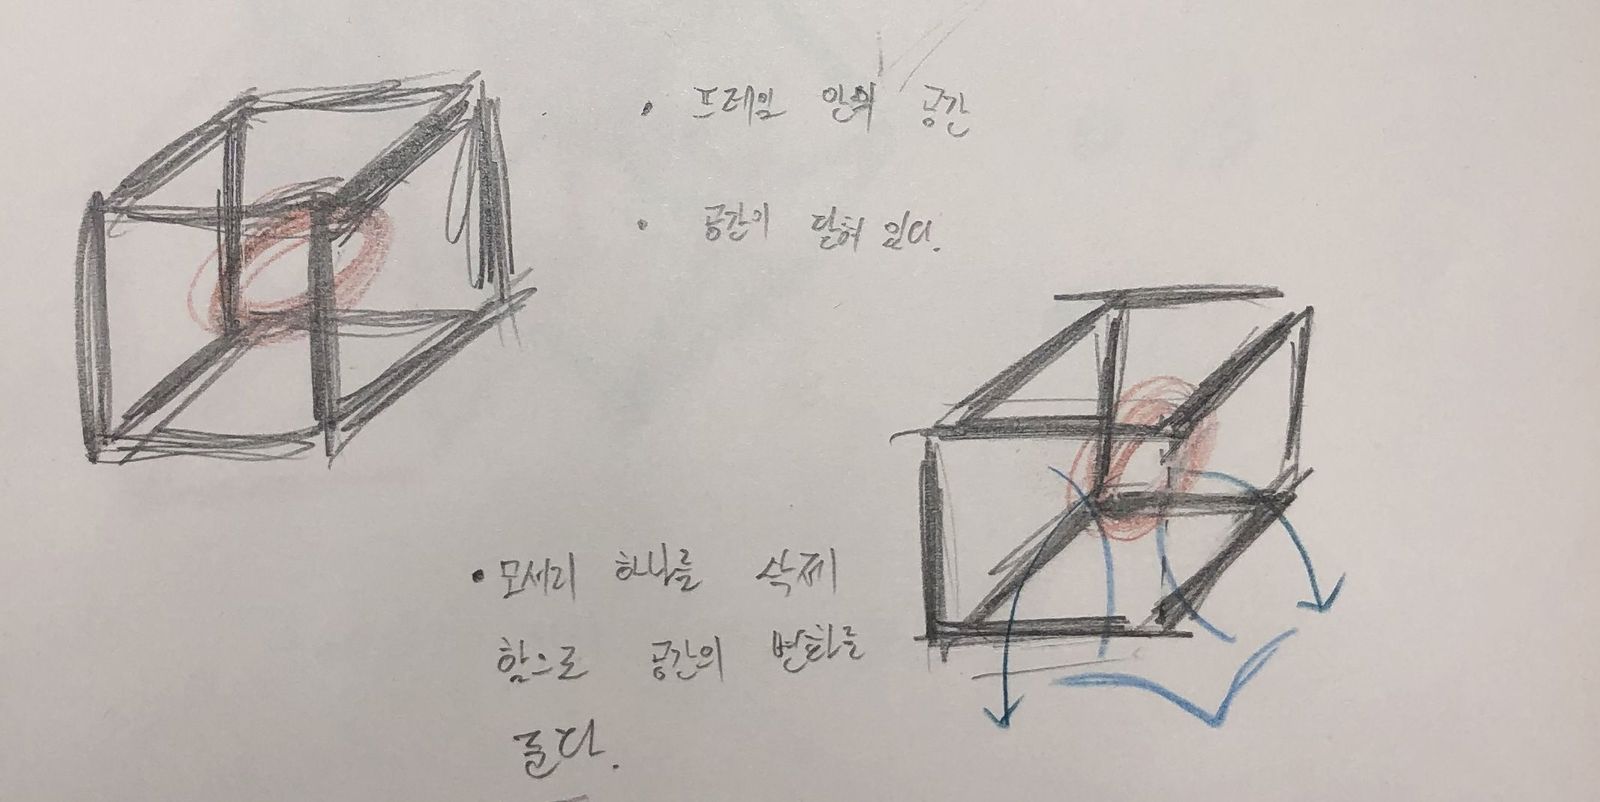 • 프레임 안의 공간
• 공간이 닫혀 있다.
• 모서리 하나를 삭제
함으로 공간의 변화를
준다.